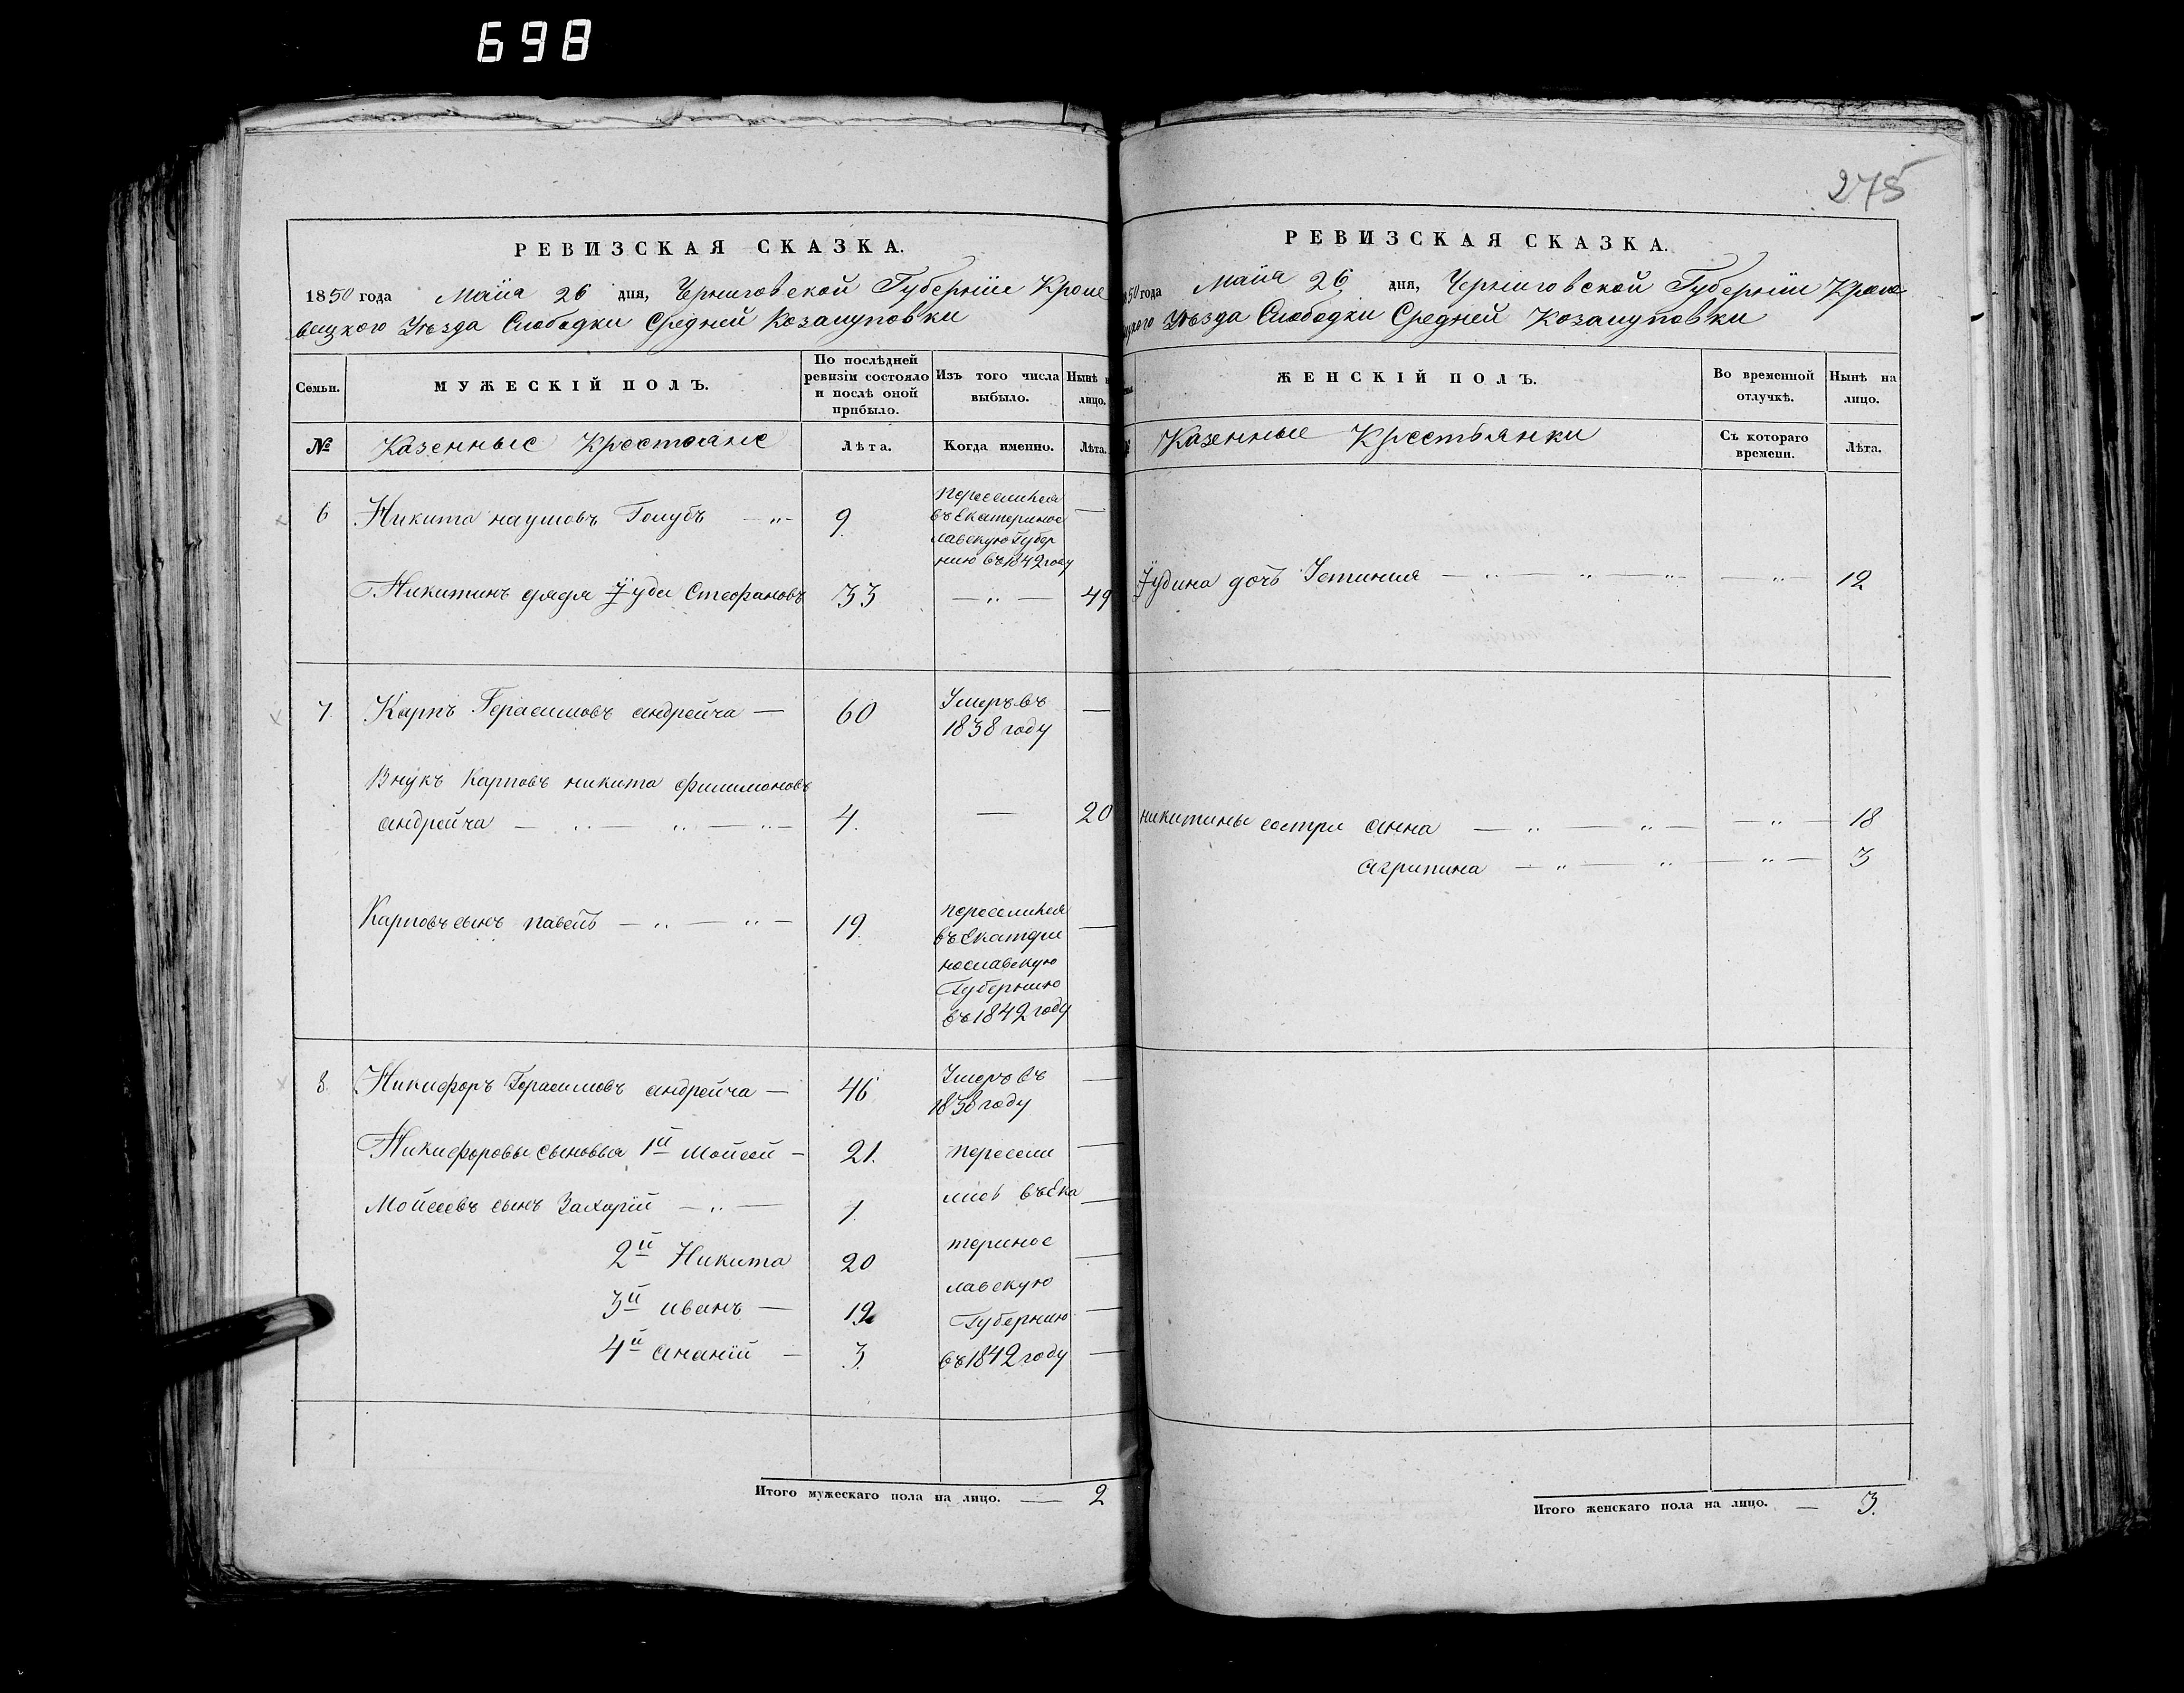 698
275
РЕВИЗСКАЯ СКАЗКА.
1850 года Маія 26 дня, Черниговской Губерніи Кроле
вецкого Уѣзда Слободки Средней Козацуповки
Семьи.
МУЖЕСКІЙ ПОЛЪ.
По послѣдней
ревизіи состояло
и послѣ оной
прибыло.
Изъ того числа
выбыло.
Нынѣ н
лицо.
№
Казенные Крестьяне
Лѣта.
Когда именно.
Лѣта.
6 Никита наумовъ Голубъ — „ — 9. —
переселился
въ Екатеринос
лавскую Губер
нию въ 1842 году
Никитинъ дядя Іуда Стефановъ 33 — „ — 49
7. Карпъ Герасимовъ андрейча — 60 —
Умеръ въ
1838 году
Внукъ Карповъ никита филимоновъ
андрейча — „ — „ — „ — 4. — 20
Карповъ сынъ павелъ — „ — „ — 19. —
переселился
въ Екатери
нославскую
Губернию
въ 1842 году
8. Никифоръ Герасимовъ андрейча — 46 —
Умеръ въ
1838 году
Никифоровы сыновья 1й Мойсей — 21. пересели —
Мойсеевъ сынъ Захарій — „ — 1. лись въ Ека —
2й Никита 20 теринос —
лавскую
3й иванъ — 19. Губернию —
4й ананій — 3. въ 1842 году —
Итого мужескаго пола на лицо. — 2
РЕВИЗСКАЯ СКАЗКА.
850 года Маія 26 дня, Черниговской Губерніи Кроле
цкого Уѣзда Слободки Средней Козацуповки
ЖЕНСКІЙ ПОЛЪ.
Во временной
отлучкѣ.
Нынѣ на
лицо.
Казенные Крестьянки
Съ котораго
времени.
Лѣта.
Іудина дочь Устиния — „ — „ — „ — — „ — 12
никитины сестри анна — „ — „ — — „ — 18
агрипина — „ — „ — — „ — 3
Итого женскаго пола на лицо. — 3.